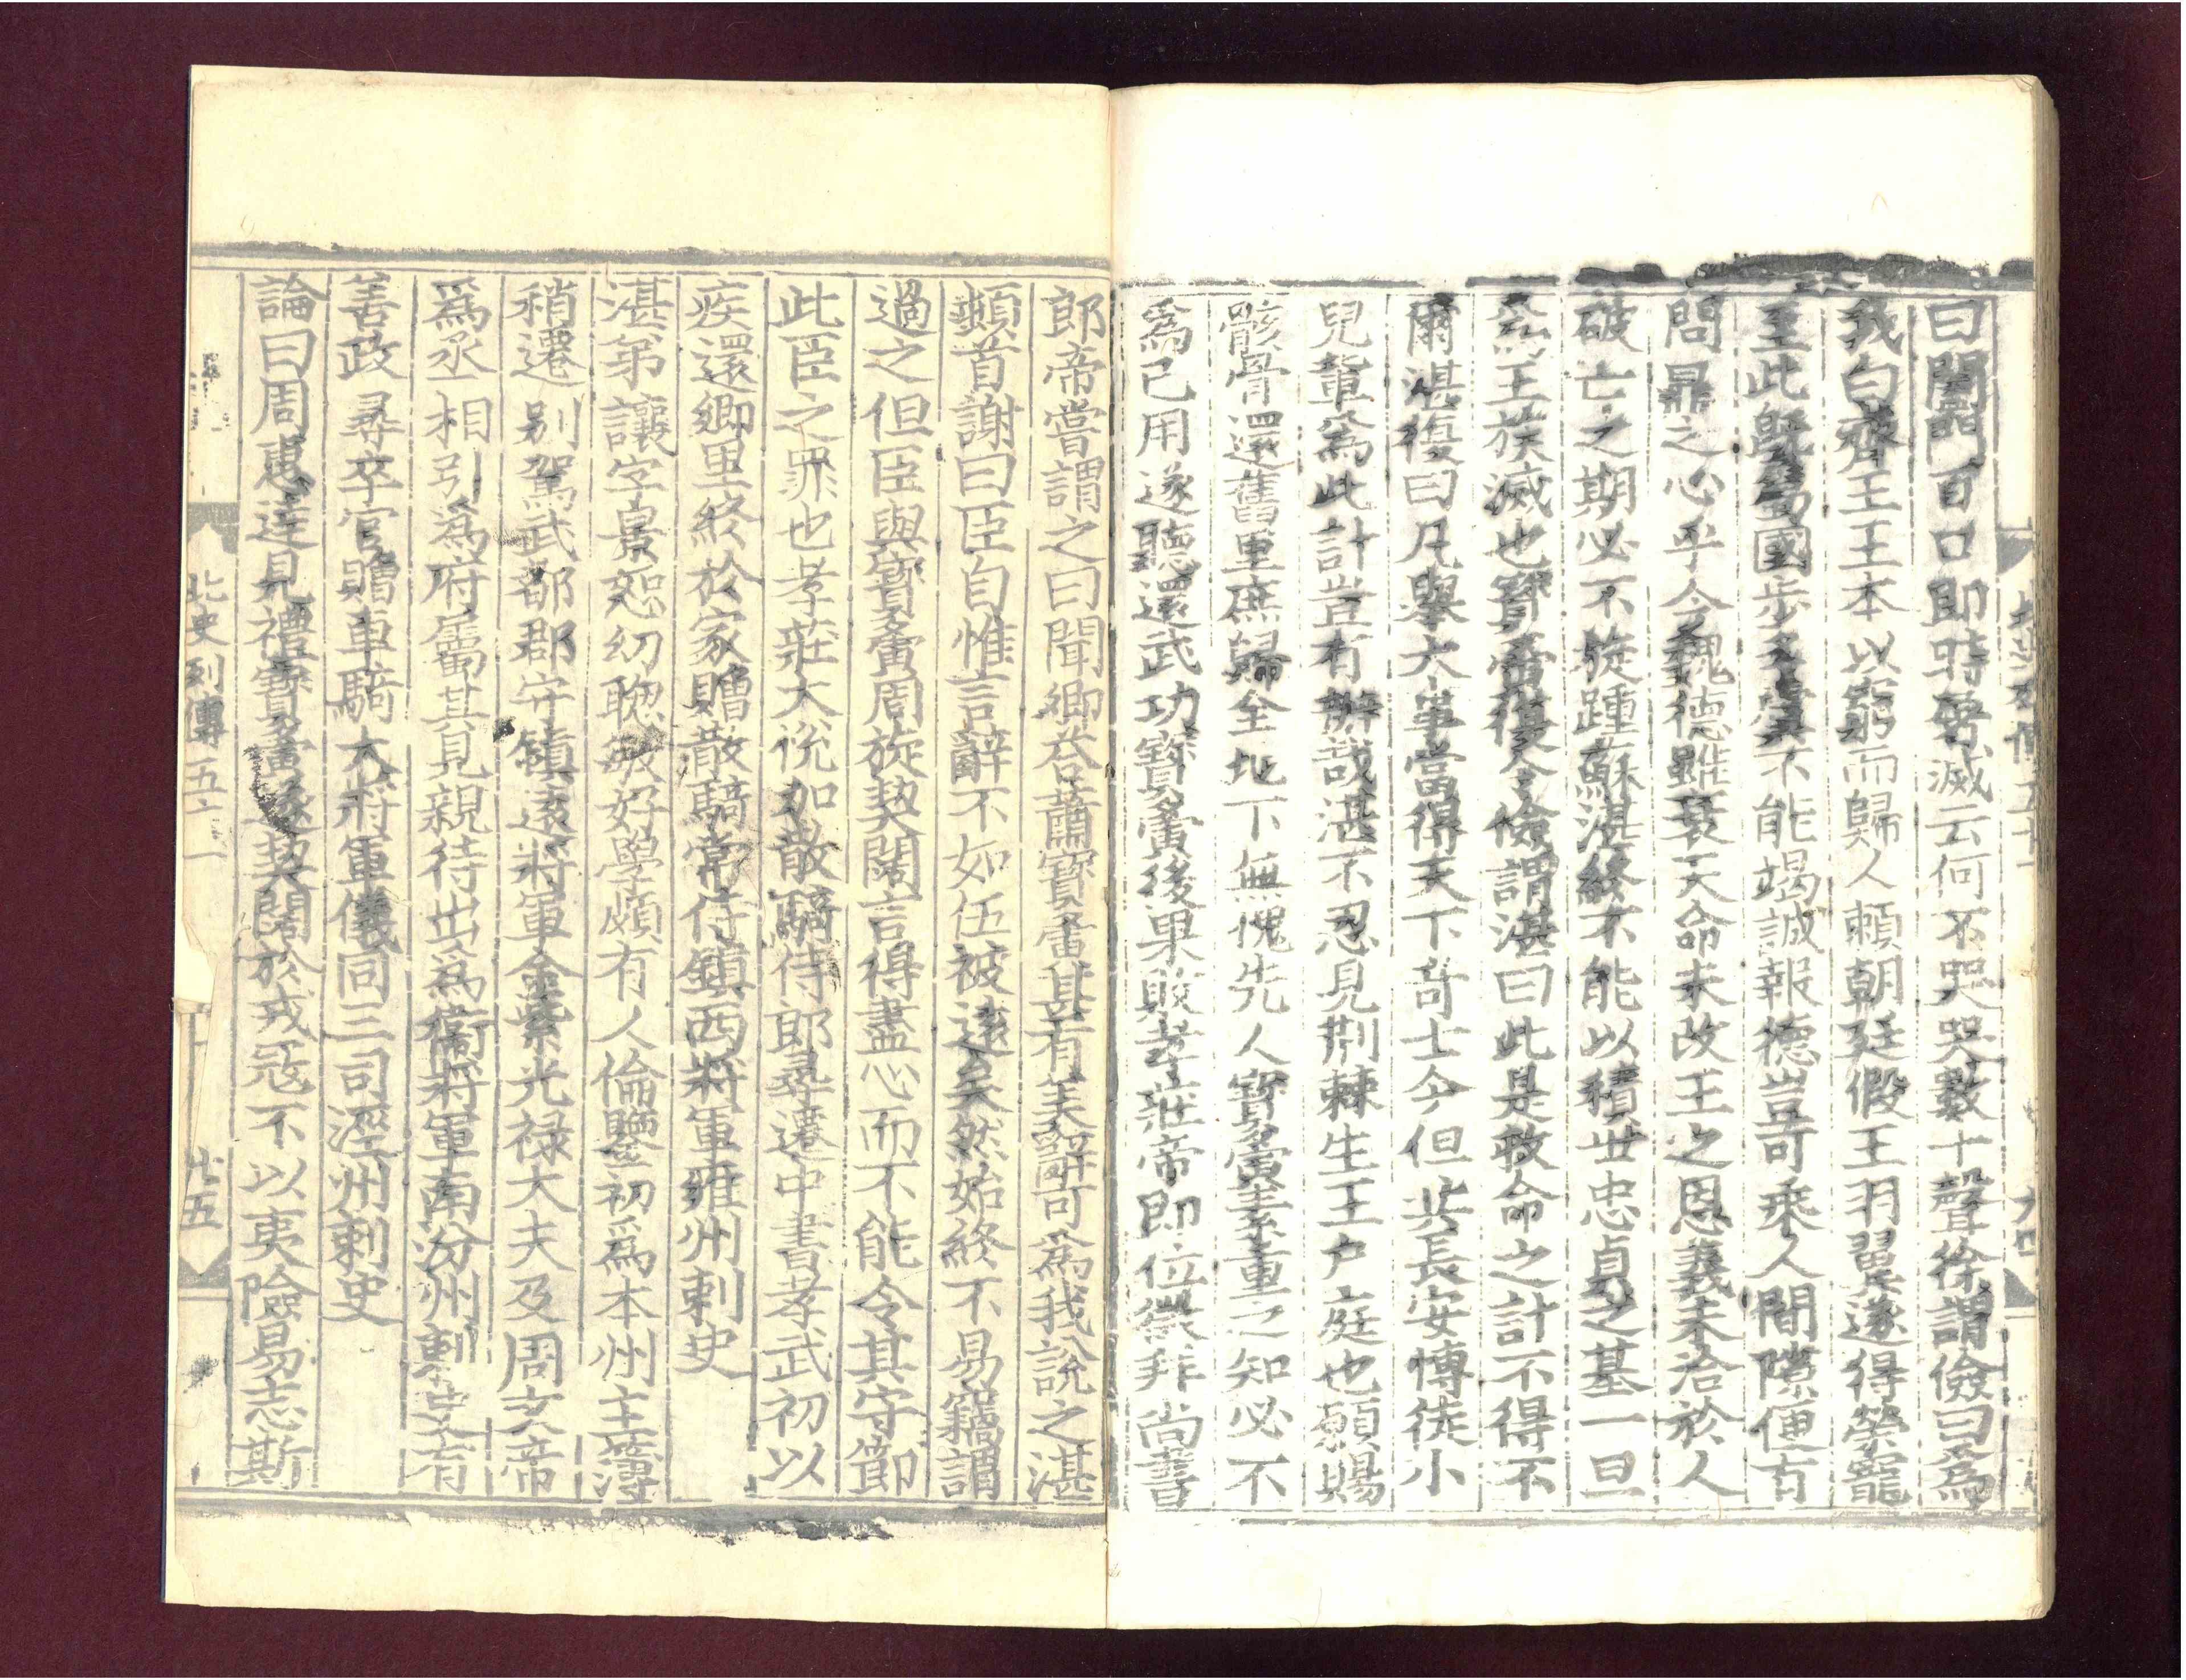 曰闔門百口即時屠滅云何不哭哭數十聲徐謂儉曰爲
我白齊王王本以窮而歸人賴朝廷假王羽翼遂得榮寵
至此旣屬國步多虞不能竭誠報德豈可乘人間隙便有
問鼎之心乎今魏德雖衰天命未改王之恩義未洽於人
破亡之期必不旋踵蘇湛終不能以積世忠貞之基一旦
爲王族滅也寶夤復令儉謂湛曰此是救命之計不得不
爾湛復曰凡舉大事當得天下奇士今但共長安博徒小
兒輩爲此計豈有辦哉湛不忍見荆棘生王户庭也願賜
骸骨還舊里庶歸全地下無愧先人寶夤素重之知必不
爲己用遂聽還武功寶夤後果敗孝莊帝即位徵拜尚書
郎帝嘗謂之曰聞卿荅蕭寶夤甚有美辭可爲我說之湛
頓首謝曰臣自惟言辭不如伍被遠矣然始終不易竊謂
過之但臣與寶夤周旋契闊言得盡心而不能令其守節
此臣之罪也孝莊大悅加散騎侍郎尋遷中書孝武初以
疾還鄉里終於家贈散騎常侍鎭西將軍雍州刺史
湛弟讓字景恕幼聰敏好學頗有人倫鑒初爲本州主簿
稍遷别駕武都郡守鎭遠將軍金紫光禄大夫及周文帝
爲丞相引爲府屬甚見親待出爲衞將軍南汾州刺史有
善政尋卒官贈車騎大將軍儀同三司涇州刺史
論曰周惠達見禮寶夤遂契闊於戎寇不以夷險易志斯
北史列傳五十一
廿五